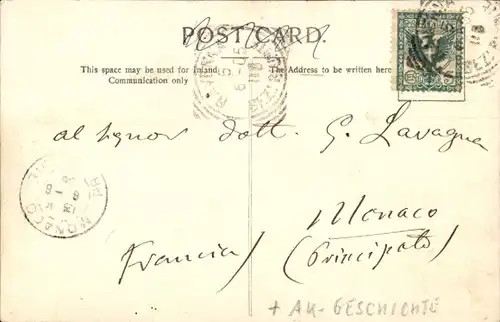 POST CARD.
This space may be used for Inland
Communication only
The Address to be written here
al Signor dott. G. Lavagna
Monaco
(Principato)
(Francia)
MONACO
+ AK-GESCHICHTE